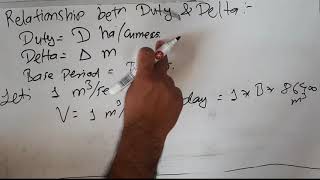 Relationship betn Duty & Delta :-
Duty = D ha/cumecs
Delta = Δ m
Base Period =
Let: 1 m³/se
V = 1 m³/ day = 1 * B * 86400 m³